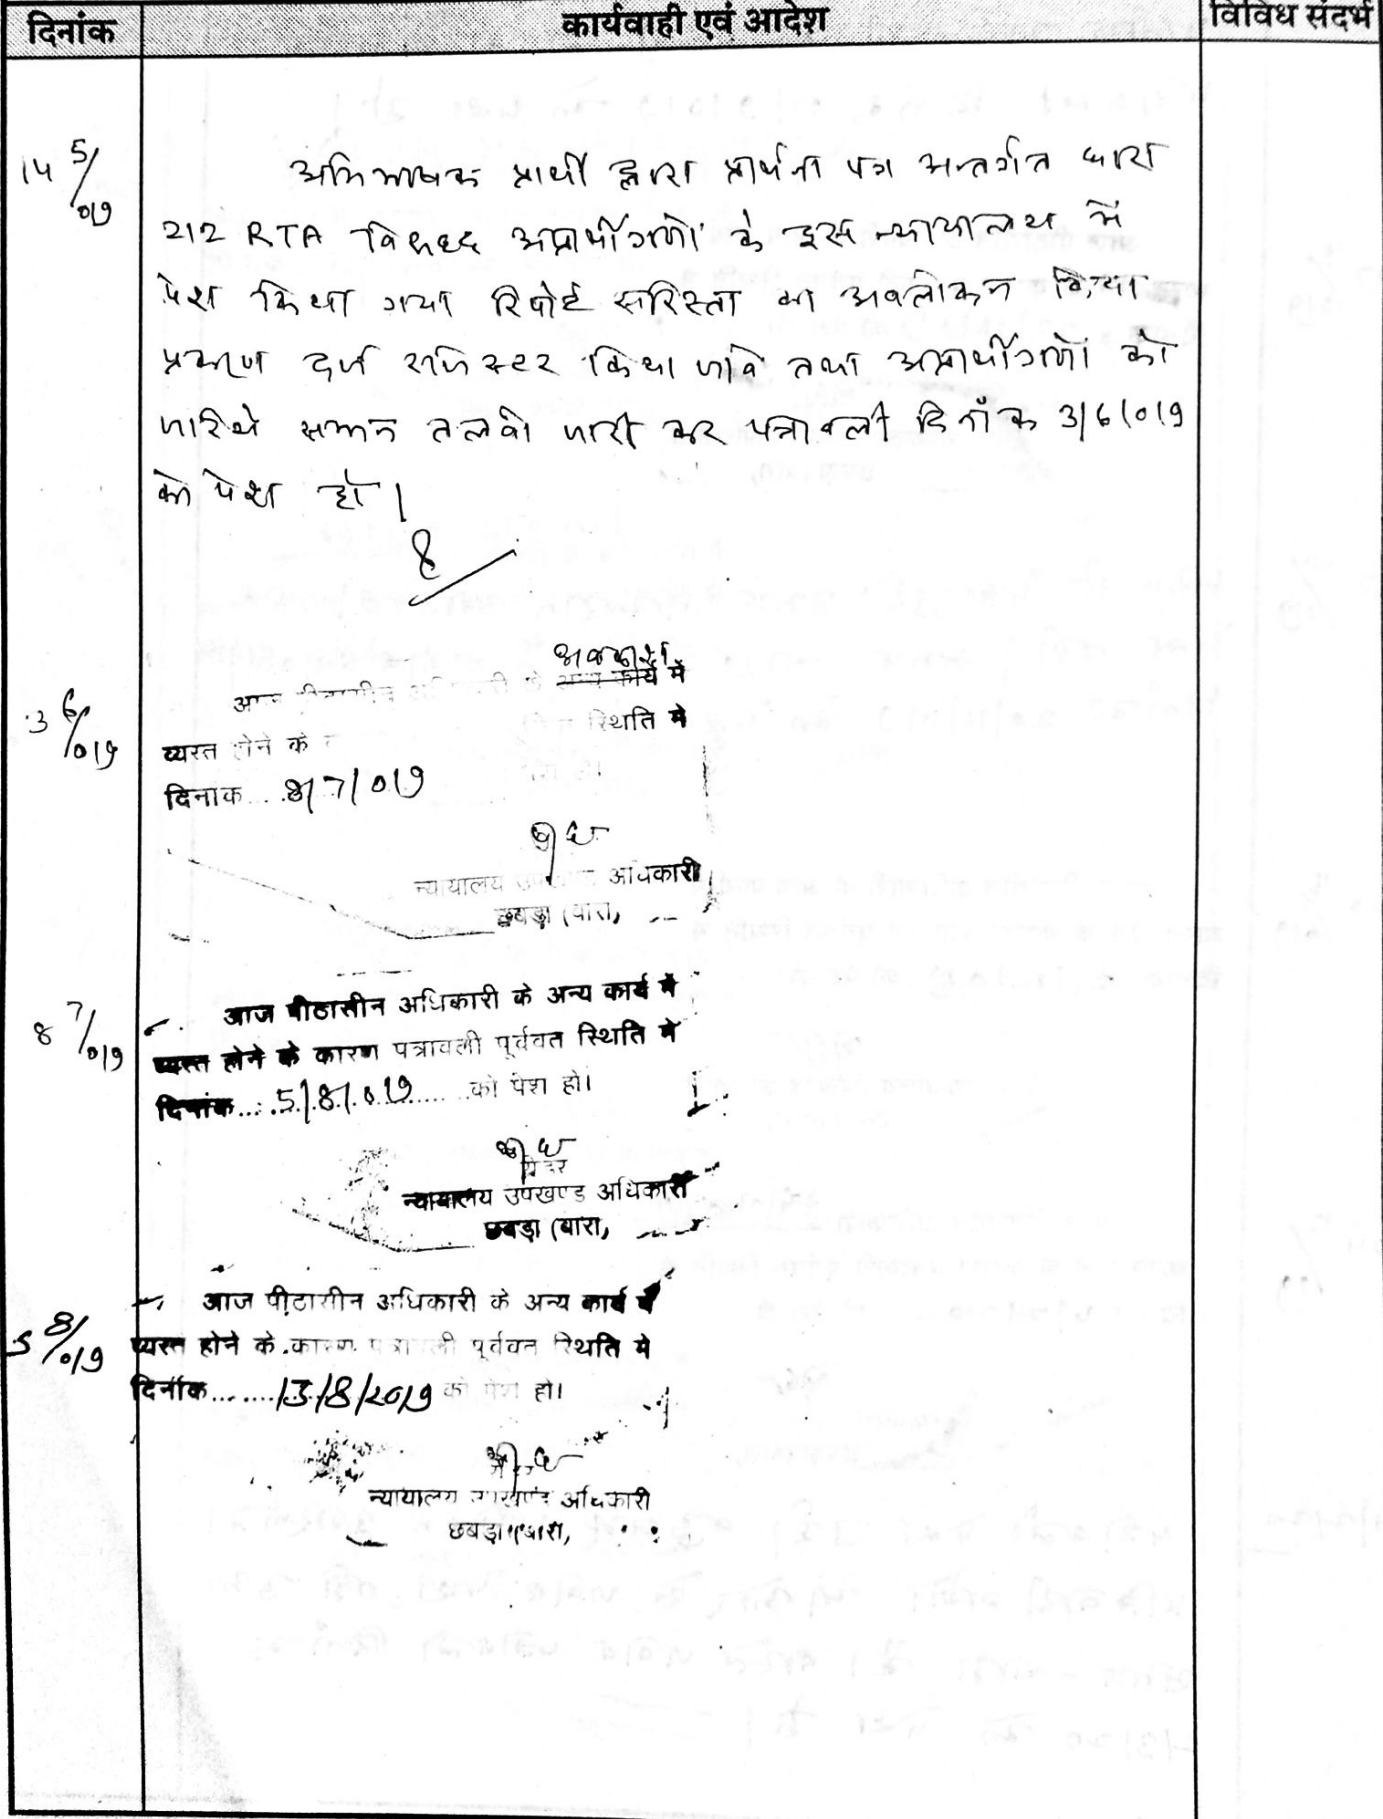 दिनांक कार्यवाही एवं आदेश विविध संदर्भ
14 5/019 अभिभाषक प्रार्थी द्वारा प्रार्थना पत्र अन्तर्गत धारा
212 RTA विरुद्ध अप्रार्थीगणों के इस न्यायालय में
पेश किया गया रिपोर्ट सरिस्ता का अवलोकन किया
प्रकरण दर्ज रजिस्टर किया जावे तथा अप्रार्थीगणों को
जरिये सम्मन तलवी जारी कर पत्रावली दिनाँक 3/6/019
को पेश हो।
अवकाश
3 6/019 आज पीठासीन अधिकारी के अन्य कार्य में
व्यस्त होने के स्थिति मे
दिनांक 8/7/019
न्यायालय उपखण्ड अधिकारी
छबड़ा (बारा,
8 7/019 आज पीठासीन अधिकारी के अन्य कार्य मे
व्यस्त होने के कारण पत्रावली पूर्ववत स्थिति मे
दिनांक....5/8/019.... को पेश हो।
न्यायालय उपखण्ड अधिकारी
छबड़ा (बारा,
5 8/019 आज पीठासीन अधिकारी के अन्य कार्य मे
व्यस्त होने के कारण पत्रावली पूर्ववत स्थिति मे
दिनांक.......13/8/2019 को पेश हो।
न्यायालय उपखण्ड अधिकारी
छबड़ा (बारा,